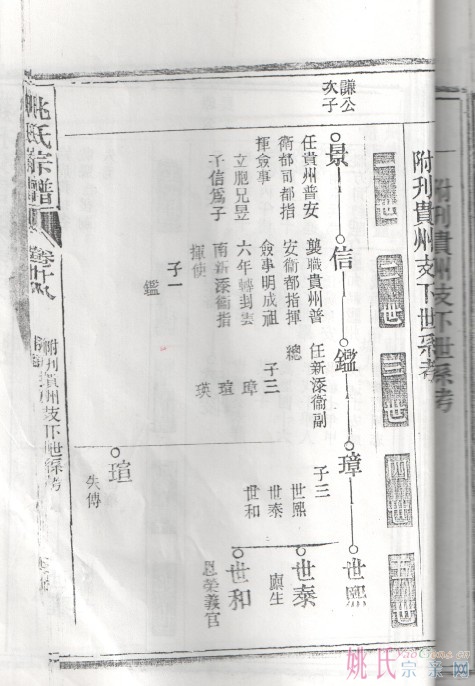 附刊貴州支下世系考
附刊貴州支下世系考
一世
二世
三世
四世
五世
謙公
次子
景
任貴州普安
衛都司都指
揮僉事
立胞兄昱
子信為子
信
襲職貴州普
安衛都指揮
僉事明成祖
六年轉封雲
南新添衛指
揮使
子一
鑑
鑑
任新添衛副
總
子三
璋
瑄
瑛
璋
子三
世熙
世泰
世和
世熙
世泰
廪生
世和
恩榮義官
瑄
失傳
姚氏宗譜
卷廿八
附刊貴州支下世系考
姚氏宗亲网